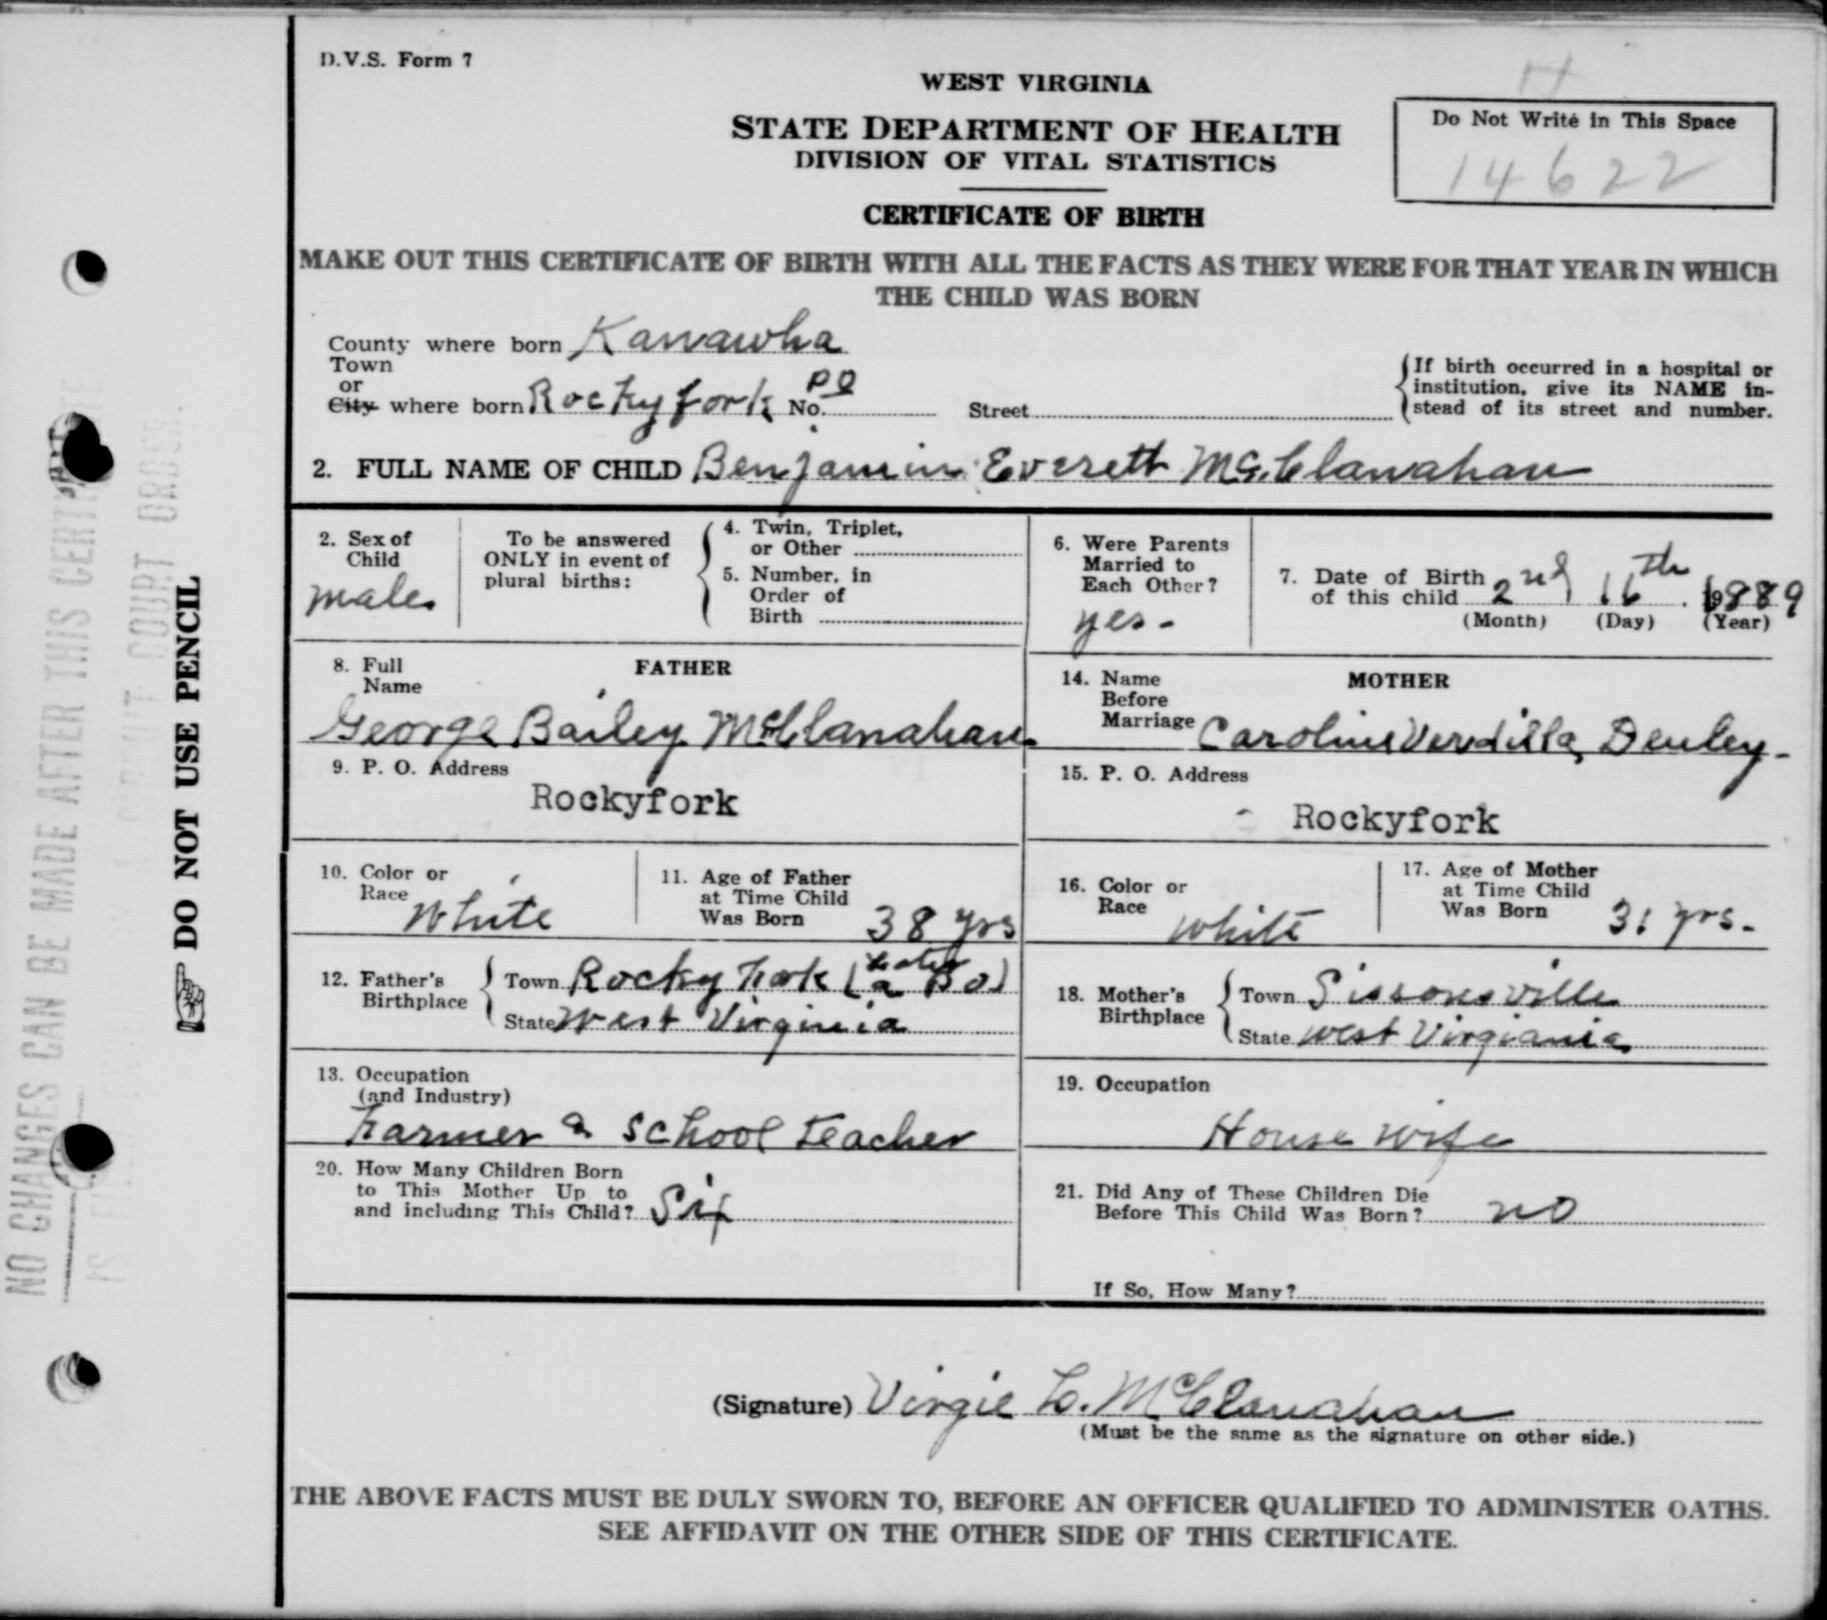 D.V.S. Form 7
WEST VIRGINIA
STATE DEPARTMENT OF HEALTH
DIVISION OF VITAL STATISTICS
H
Do Not Write in This Space
14622
CERTIFICATE OF BIRTH
MAKE OUT THIS CERTIFICATE OF BIRTH WITH ALL THE FACTS AS THEY WERE FOR THAT YEAR IN WHICH
THE CHILD WAS BORN
County where born Kanawha
Town
or
City where born Rockyfork No. PO Street
If birth occurred in a hospital or
institution, give its NAME in-
stead of its street and number.
2. FULL NAME OF CHILD Benjamin Everett McClanahan
2. Sex of
Child
male
To be answered
ONLY in event of
plural births:
4. Twin, Triplet,
or Other
5. Number, in
Order of
Birth
6. Were Parents
Married to
Each Other?
yes -
7. Date of Birth
of this child 2nd 16th 1889
(Month) (Day) (Year)
8. Full
Name
FATHER
George Bailey McClanahan
14. Name
Before
Marriage
MOTHER
Caroline Verdilla Denley -
9. P. O. Address
Rockyfork
15. P. O. Address
- Rockyfork
10. Color or
Race
White
11. Age of Father
at Time Child
Was Born
38 yrs
16. Color or
Race
White
17. Age of Mother
at Time Child
Was Born
31 yrs.-
12. Father's
Birthplace
Town Rocky Fork (later a P O)
State West Virginia
18. Mother's
Birthplace
Town Sissonsville
State West Virgiania
13. Occupation
(and Industry)
Farmer & School Teacher
19. Occupation
House wife
20. How Many Children Born
to This Mother Up to
and including This Child? Six
21. Did Any of These Children Die
Before This Child Was Born? no
If So, How Many?
(Signature) Virgie L. McClanahan
(Must be the same as the signature on other side.)
THE ABOVE FACTS MUST BE DULY SWORN TO, BEFORE AN OFFICER QUALIFIED TO ADMINISTER OATHS.
SEE AFFIDAVIT ON THE OTHER SIDE OF THIS CERTIFICATE.
DO NOT USE PENCIL
NO CHANGES CAN BE MADE AFTER THIS CERTIFICATE
IS FILED EXCEPT BY A CIRCUIT COURT ORDER.